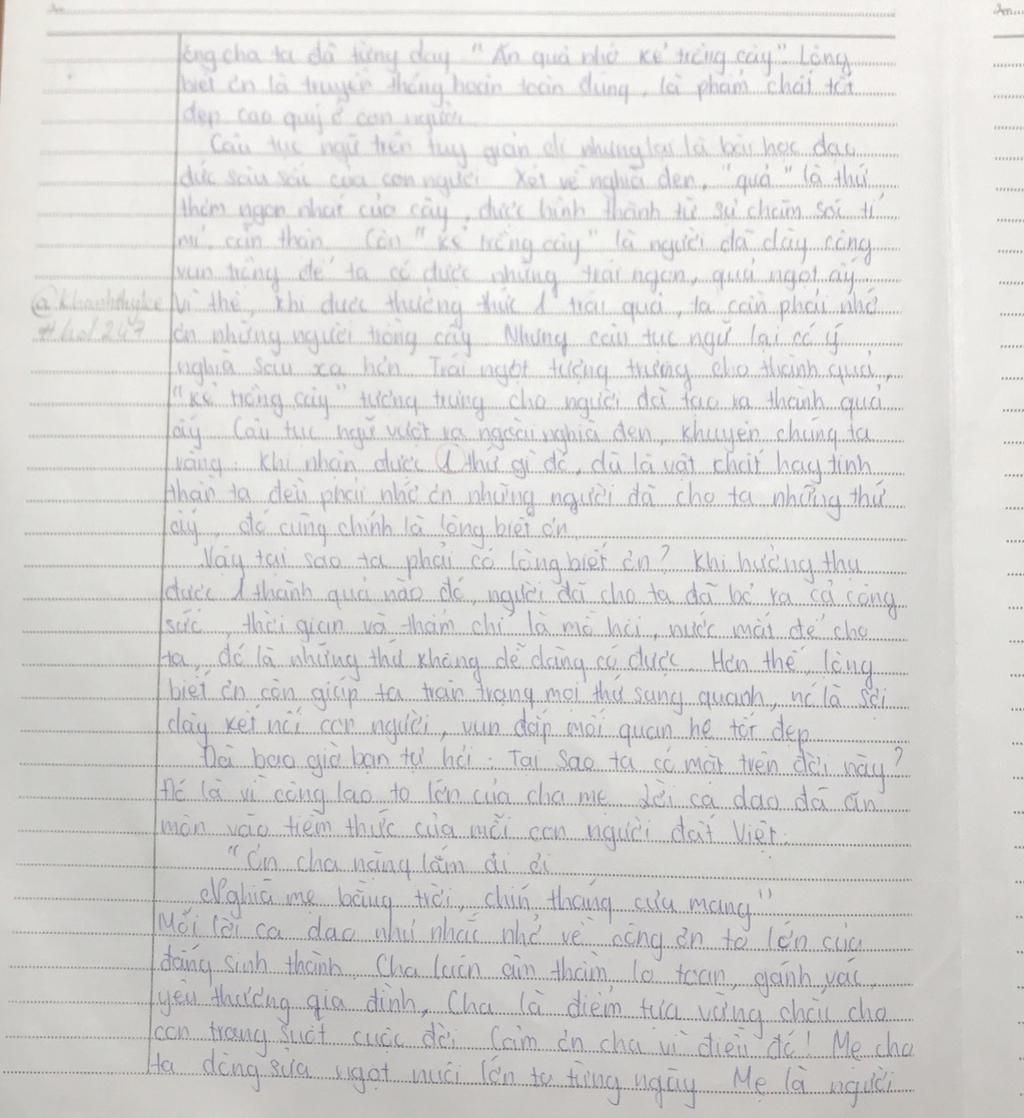 ông cha ta đã từng dạy "Ăn quả nhớ kẻ trồng cây" Lòng
biết ơn là truyền thống hoàn toàn đúng, là phẩm chất tốt
đẹp cao quý ở con người.
Câu tục ngữ trên tuy giản dị nhưng lại là bài học đạo
đức sâu sắc của con người. Xét về nghĩa đen, "quả" là thứ
thơm ngon nhất của cây, được hình thành từ sự chăm sóc tỉ
mỉ, cẩn thận. Còn "kẻ trồng cây" là người đã dày công
vun trồng để ta có được những trái ngon, quả ngọt ấy.
Vì thế, khi được thưởng thức 1 trái quả, ta cần phải nhớ
ơn những người trồng cây. Nhưng câu tục ngữ lại có ý
nghĩa sâu xa hơn. Trái ngọt tượng trưng cho thành quả,
"kẻ trồng cây" tượng trưng cho người đã tạo ra thành quả
ấy. Câu tục ngữ vượt ra ngoài nghĩa đen, khuyên chúng ta
rằng: Khi nhận được 1 thứ gì đó, dù là vật chất hay tinh
thần ta đều phải nhớ ơn những người đã cho ta những thứ
ấy, đó cũng chính là lòng biết ơn.
Vậy tại sao ta phải có lòng biết ơn? Khi hưởng thụ
được 1 thành quả nào đó, người đã cho ta đã bỏ ra cả công
sức, thời gian và thậm chí là mồ hôi, nước mắt để cho
ta, đó là những thứ không dễ dàng có được. Hơn thế, lòng
biết ơn còn giúp ta trân trọng mọi thứ sung quanh, nó là sợi
dây kết nối con người, vun đắp mối quan hệ tốt đẹp.
Đã bao giờ bạn tự hỏi: Tại sao ta có mặt trên đời này?
Đó là vì công lao to lớn của cha mẹ. Lời ca dao đã ăn
mòn vào tiềm thức của mỗi con người đất Việt:
"Ơn cha nặng lắm ai ơi
Nghĩa mẹ bằng trời, chín tháng cưu mang"
Mỗi lời ca dao như nhắc nhở về công ơn to lớn của
đấng sinh thành. Cha luôn âm thầm lo toan, gánh vác,
yêu thương gia đình. Cha là điểm tựa vững chãi cho
con trong suốt cuộc đời. Cảm ơn cha vì điều đó! Mẹ cho
ta dòng sữa ngọt nuôi lớn ta từng ngày. Mẹ là người